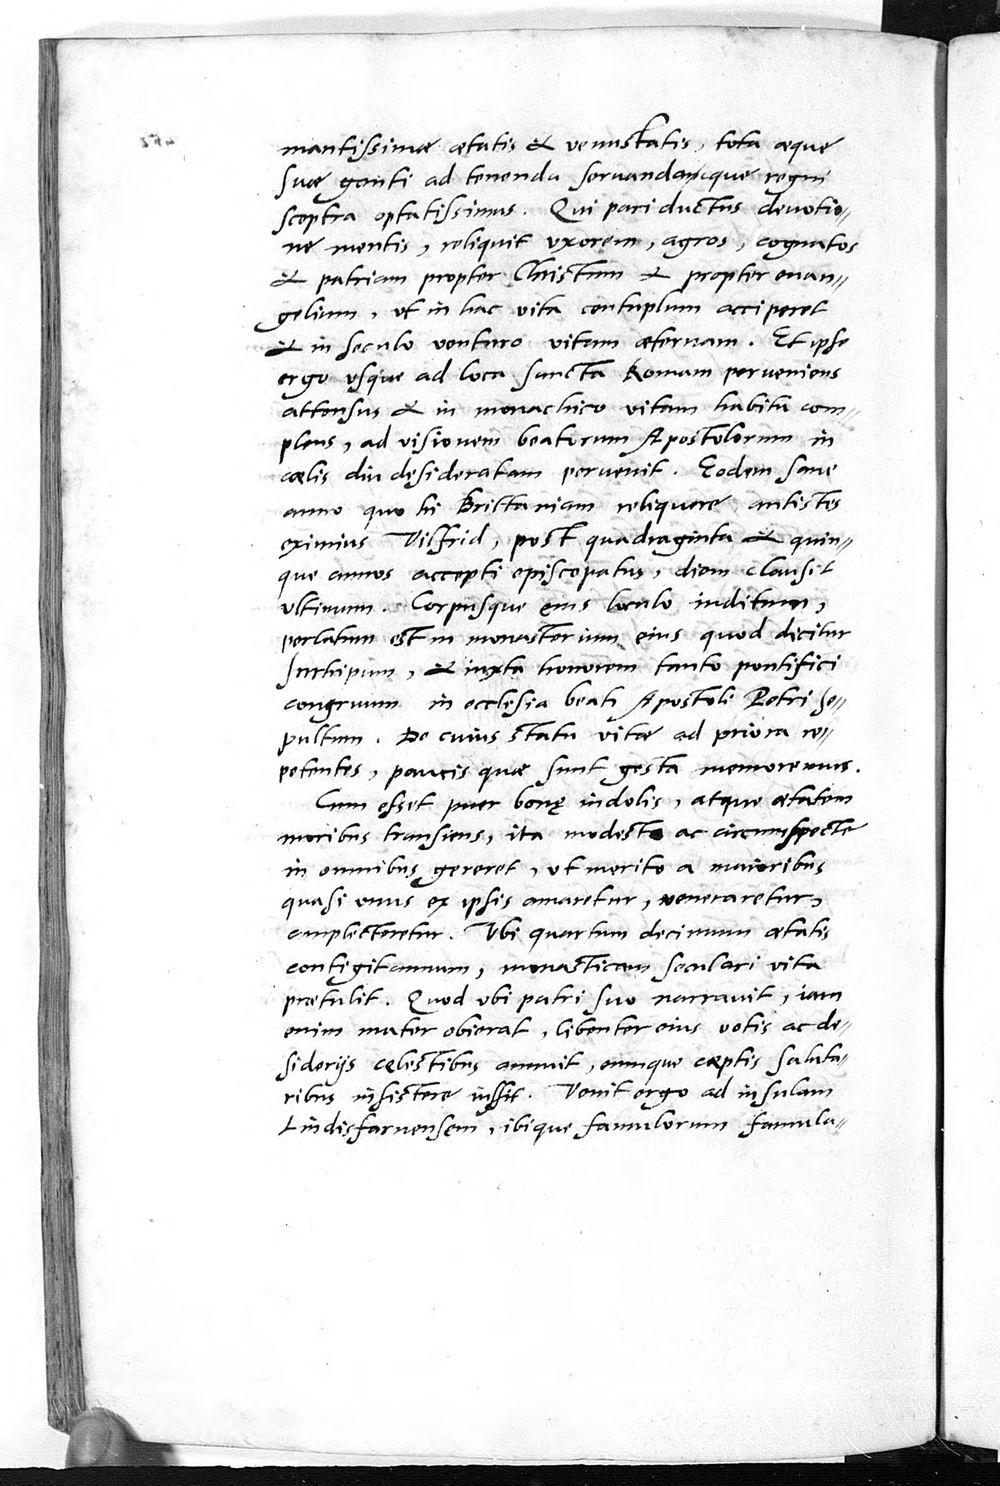 mantissimæ ætatis & venustatis, tota æque
suæ genti ad tenenda servandaque regni
sceptra optatissimus. Qui pari ductus devotio,,
ne mentis, reliquit uxorem, agros, cognatos
& patriam propter Christum & propter evan,,
gelium, ut in hac vita centuplum acciperet
& in seculo venturo vitam æternam. Et ipse
ergo usque ad loca sancta Romam perveniens
attonsus & in monachico vitam habitu com,,
plens, ad visionem beatorum Apostolorum in
cœlis diu desideratam pervenit. Eodem sane
anno quo hi Brittaniam reliquere, antistes
eximius Vilfrid, post quadraginta & quin,,
que annos accepti episcopatus, diem clausit
ultimum. Corpusque eius loculo inditum,
perlatum est in monasterium eius quod dicitur
Inrhipum, & iuxta honorem tanto pontifici
congruum in ecclesia beati Apostoli Petri se,,
pultum. De cuius statu vitæ ad priora re,,
petentes, paucis quæ sunt gesta memoremus.
Cum esset puer bonę indolis, atque ætatem
moribus transiens, ita modeste ac circumspecte
in omnibus gereret, ut merito a maioribus
quasi unus ex ipsis amaretur, veneraretur,
amplecteretur. Ubi quartum decimum ætatis
contigit annum, monasticam seculari vita
prætulit. Quod ubi patri suo narravit, iam
enim mater obierat, libenter eius votis ac de,,
siderijs cælestibus annuit, eumque cæptis saluta,,
ribus insistere iussit. Venit ergo ad insulam
Lindisfarnensem, ibique famulorum famula,,